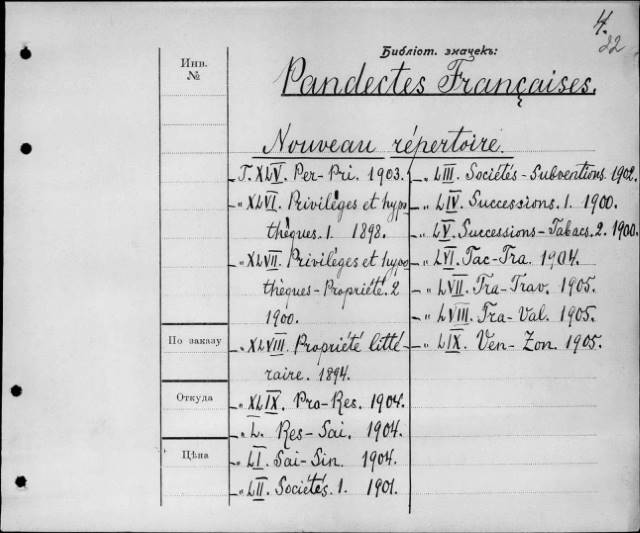 4.
22
Библіот. значекъ:
Pandectes Françaises.
Nouveau répertoire.
Инв.
№
По заказу
Откуда
Цѣна
T. XLV. Per-Pri. 1903.
" XLVI. Privilèges et hypo
thèques. 1. 1898.
" XLVII. Privilèges et hypo
thèques-Propriété. 2
1900.
" XLVIII. Propriété litté
raire. 1894.
" XLIX. Pro-Res. 1904.
" L. Res-Sai. 1904.
" LI. Sai-Sin. 1904.
" LII. Sociétés. 1. 1901.
" LIII. Sociétés-Subventions. 1902.
" LIV. Successions. 1. 1900.
" LV. Successions-Tabacs. 2. 1900.
" LVI. Tac-Tra. 1904.
" LVII. Tra-Trav. 1905.
" LVIII. Tra-Val. 1905.
" LIX. Ven-Zon. 1905.